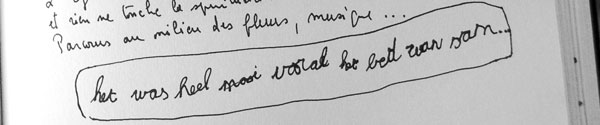 et rien ne touche le
Parcours au milieu des fleurs, musique ...
het was heel mooi vooral het beeld van sam...